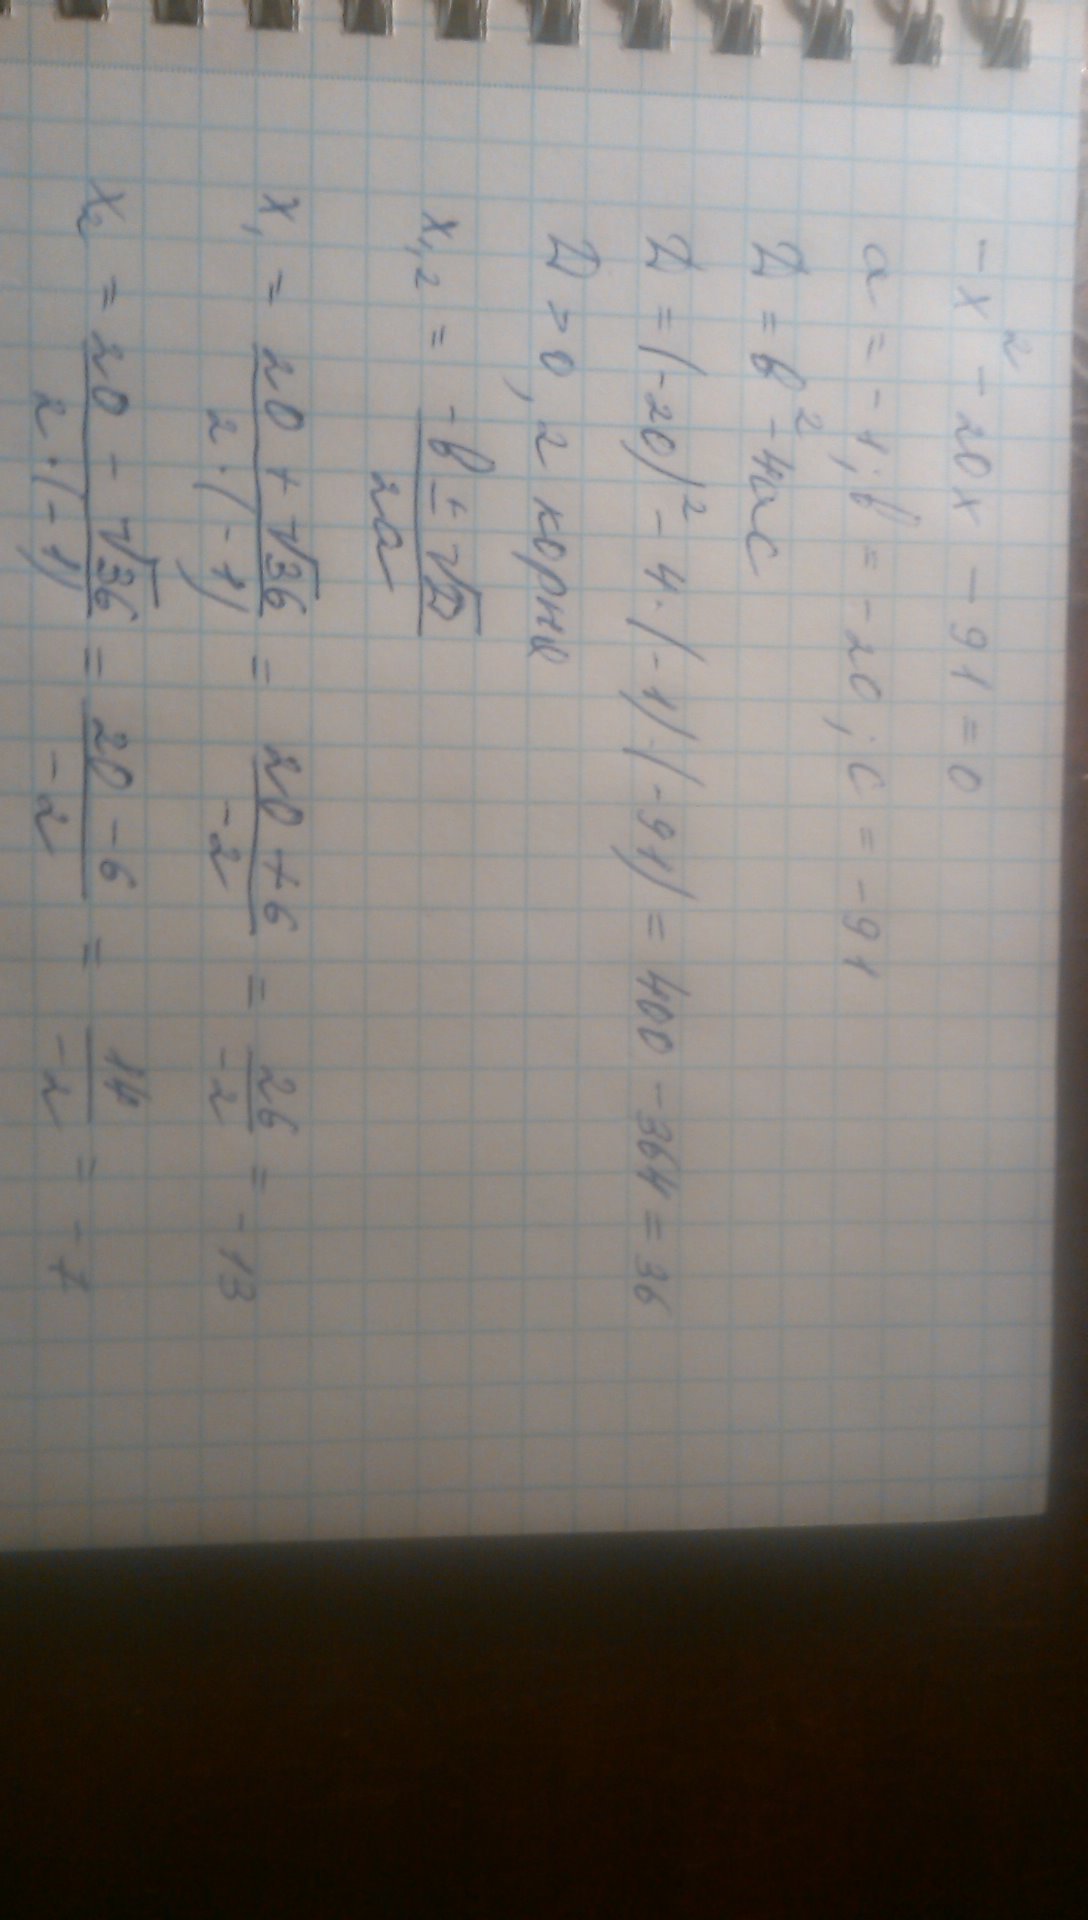 -x² - 20x - 91 = 0
a = -1; b = -20; c = -91
D = b² - 4ac
D = (-20)² - 4·(-1)·(-91) = 400 - 364 = 36
D > 0, 2 корня
x₁,₂ = (-b ± √D) / 2a
x₁ = (20 + √36) / (2·(-1)) = (20 + 6) / -2 = 26 / -2 = -13
x₂ = (20 - √36) / (2·(-1)) = (20 - 6) / -2 = 14 / -2 = -7